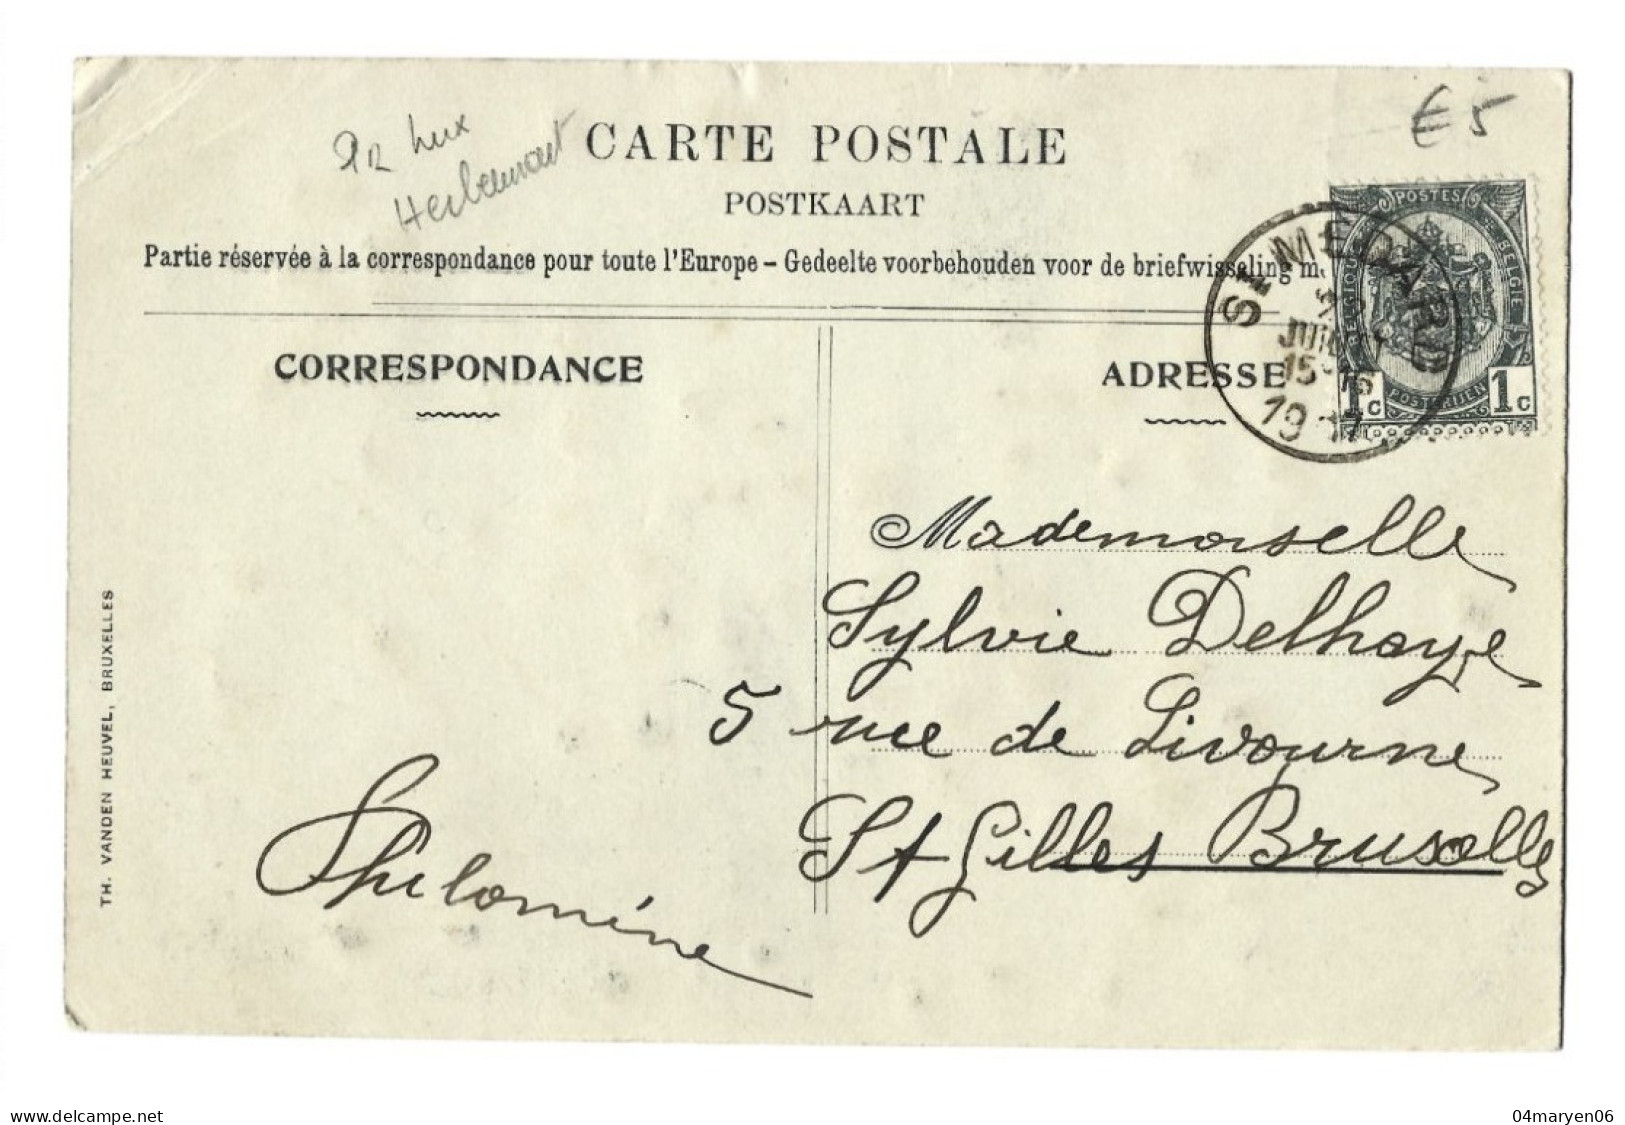 Herbeumont
€ 5
CARTE POSTALE
POSTKAART
Partie réservée à la correspondance pour toute l'Europe – Gedeelte voorbehouden voor de briefwisseling
POSTES
BELGIQUE
BELGIE
POSTERIJEN
1 c
1 c
ST MEDARD
JUIL
15-16
CORRESPONDANCE
ADRESSE
Mademoiselle
Sylvie Delhaye
5 rue de Livourne
St Gilles Bruxelles
Philomène
TH. VANDEN HEUVEL, BRUXELLES
www.delcampe.net
04maryen06